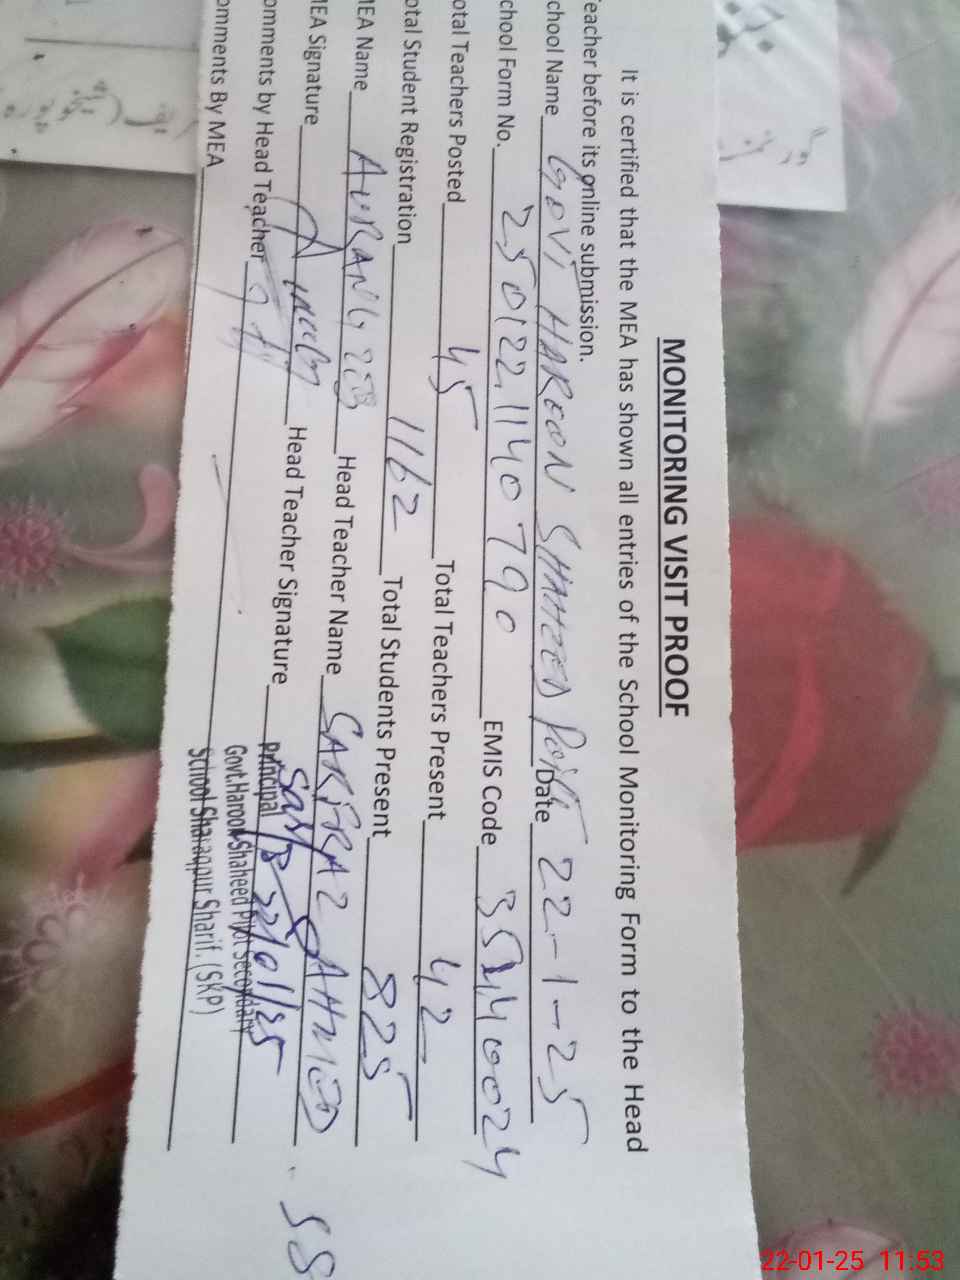 MONITORING VISIT PROOF
It is certified that the MEA has shown all entries of the School Monitoring Form to the Head
eacher before its online submission.
chool Name GOVT HAROON SHAHEED Date 22-1-25
chool Form No. 250122 1140790 EMIS Code 35140024
otal Teachers Posted 45 Total Teachers Present 42
otal Student Registration 1162 Total Students Present 825
MEA Name AURANGZEB Head Teacher Name SARFRAZ AHMED
MEA Signature Head Teacher Signature
omments by Head Teacher
omments By MEA
Principal 22/01/25
Govt.Haroon Shaheed Pilot Secondary
School Sharaqpur Sharif. (SKP)
SS
22-01-25 11:53